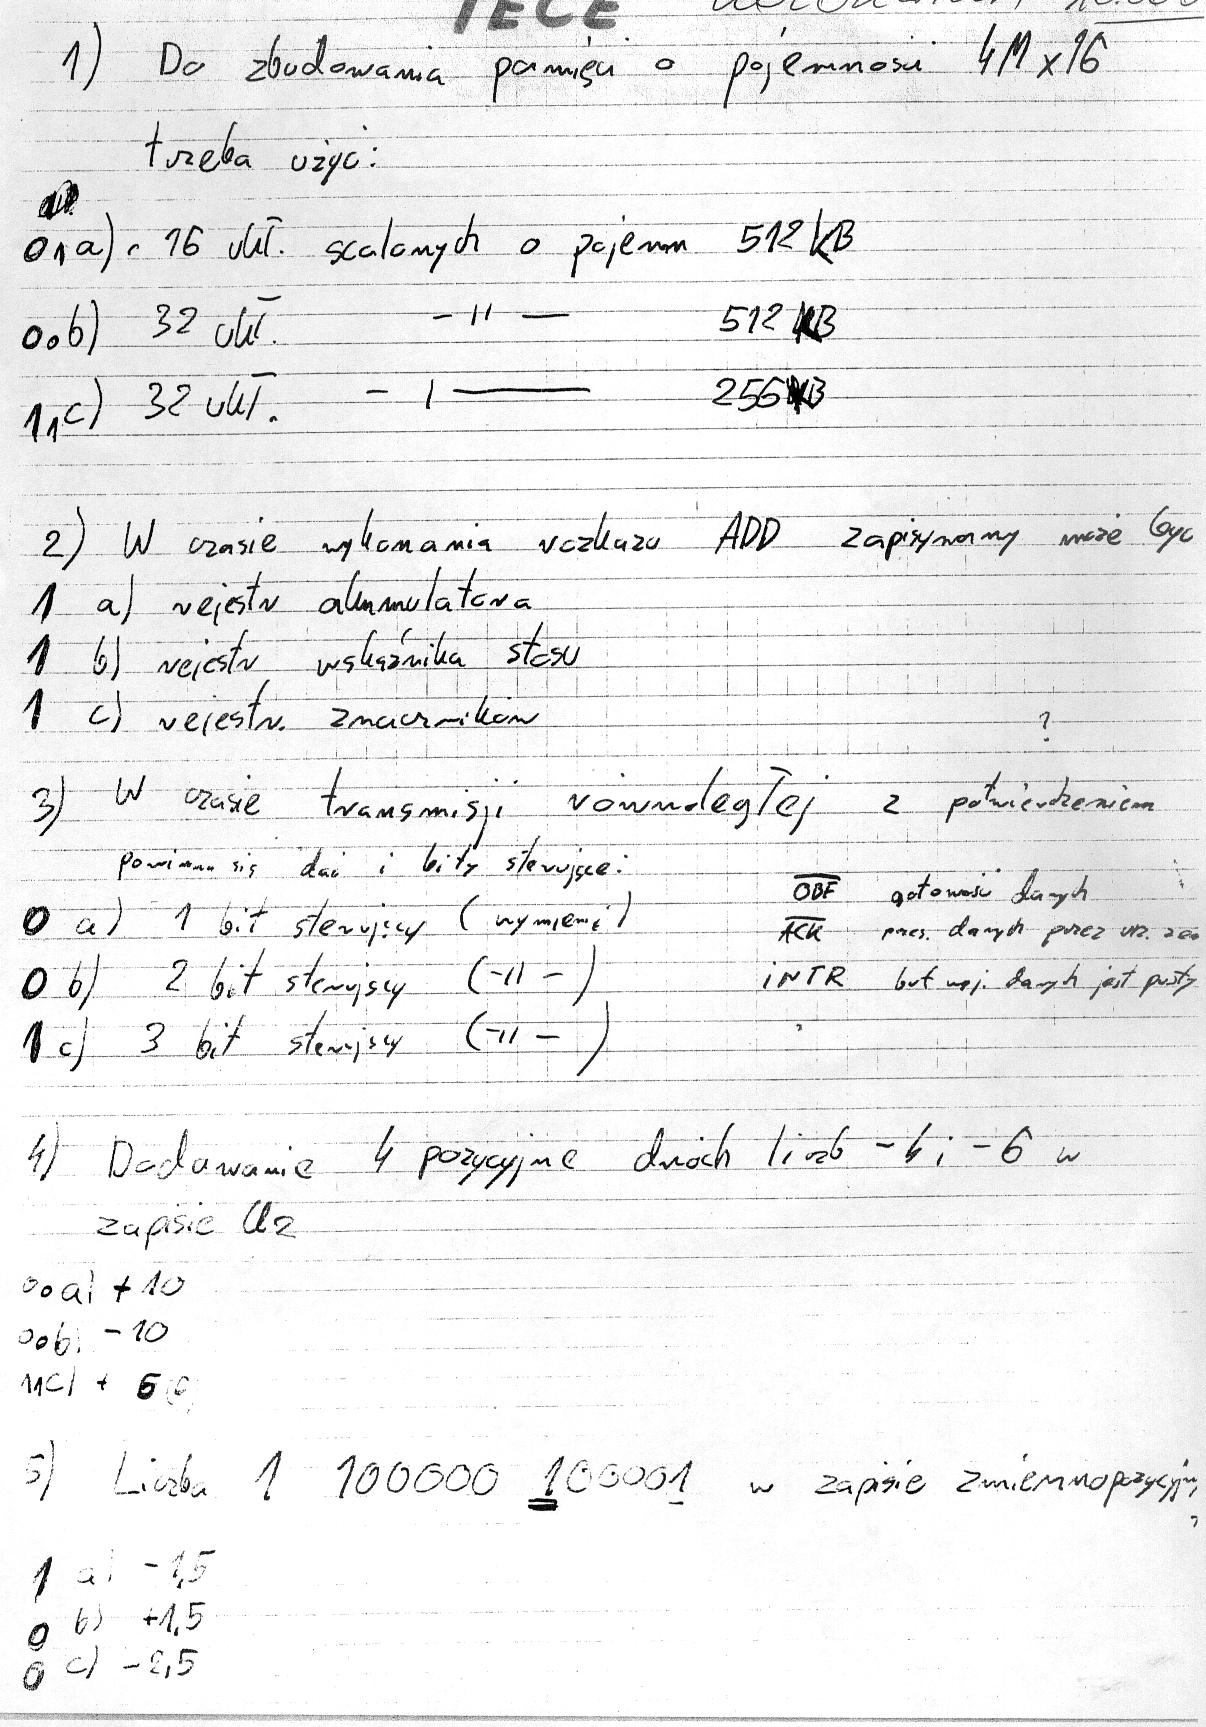 TECE
1) Do zbudowania pamięci o pojemności 4M x 16
trzeba użyć:
01 a) 16 ukł. scalonych o pojemn 512 kB
00 b) 32 ukł. -"- 512 kB
11 c) 32 ukł. - | - 256 kB
2) W czasie wykonania rozkazu ADD zapisywany może być
1 a) rejestr akumulatora
1 b) rejestr wskaźnika stosu
1 c) rejestr. znaczników
?
3) W czasie transmisji równoległej z potwierdzeniem
powinno się dać i bity sterujące:
OBF gotowość danych
0 a) 1 bit sterujący (wymienić)
ACK danych przez urz.
0 b) 2 bit sterujący (-"-)
INTR buf wyj. danych jest pusty
1 c) 3 bit sterujący (-"-)
4) Dodawanie 4 pozycyjne dwóch liczb -4 i -6 w
zapisie U2
00 a) +10
00 b) -10
11 c) + 6
5) Liczba 1 100000 100001 w zapisie zmiennopozycyjn.
?
1 a) -1,5
0 b) +1,5
0 c) -2,5